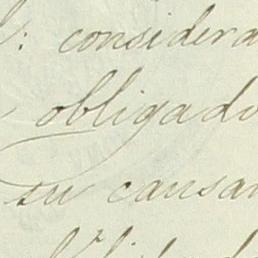 : considera
obligado
su causa